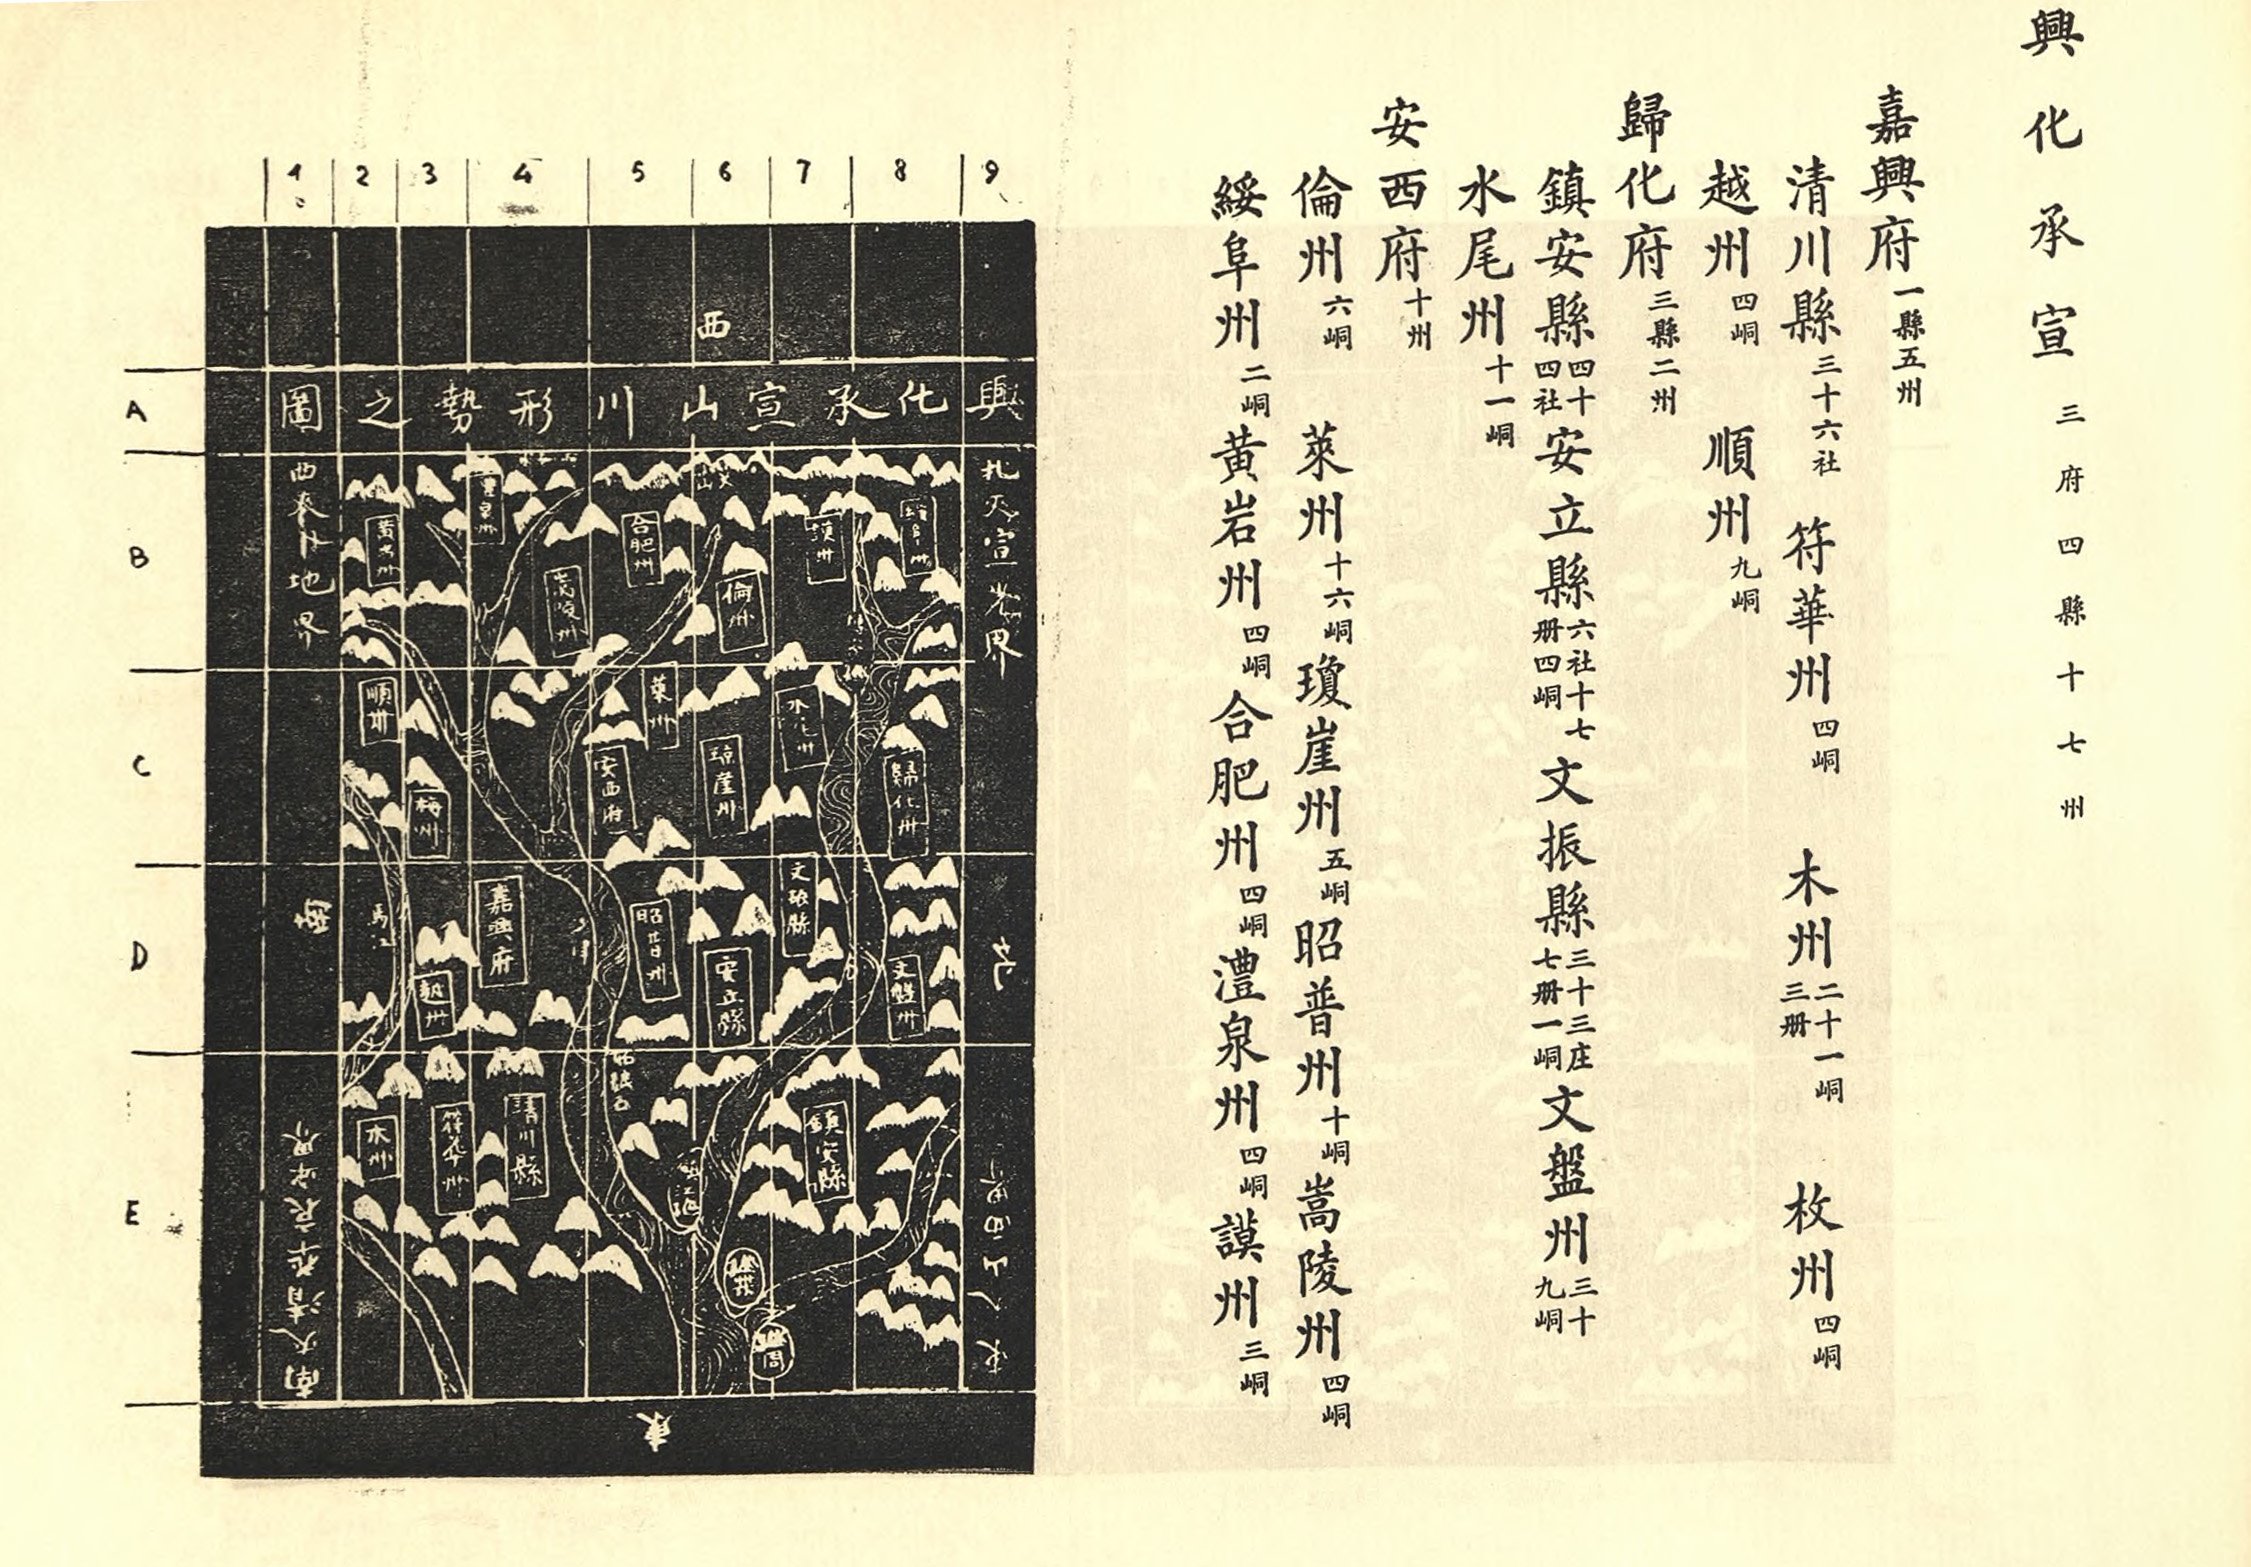 興化承宣 三府四縣十七州
嘉興府 一縣五州
清川縣 三十六社 符華州 四峒 木州 二十一峒三册 枚州 四峒
越州 四峒 順州 九峒
歸化府 三縣二州
鎮安縣 四十四社 安立縣 六社十七册四峒 文振縣 三十三庄七册一峒 文盤州 三十九峒
水尾州 十一峒
安西府 十州
倫州 六峒 萊州 十六峒 瓊崖州 五峒 昭普州 十峒 嵩陵州 四峒
綏阜州 二峒 黃岩州 四峒 合肥州 四峒 澧泉州 四峒 謨州 三峒
1 2 3 4 5 6 7 8 9
西
A
興化承宣山川形勢之圖
B
黃岩州
合肥州
嵩陵州
倫州
C
順州
萊州
安西府
瓊崖州
歸化州
梅州
D
馬江
嘉興府
安立縣
文盤州
E
木州
符華州
清川縣
鎮安縣
東